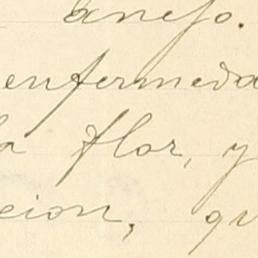 anejo.
enfermeda
la flor, y
cion, qu